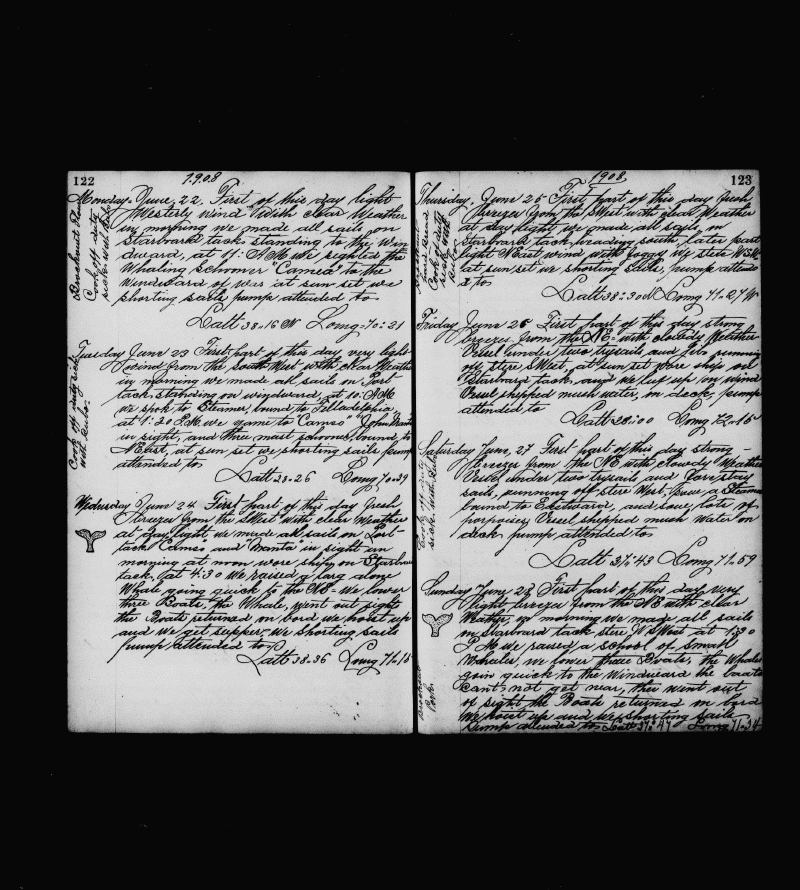 122
1908
Monday June, 22. First of this day light
Westerly wind with clear Weather
in morning we made all sails on
Starboard tack standing to the, Win
dward, at 11: A.M we sighted the
Whaling schooner "Cameo" to the
Windward of us at sun set we
shorting sails pump attended to
Latt 38-16 N Long-70-21
Cook off duty
Tuesday June 23 First part of this day very light
wind from the South West with clear Weather
in morning we made all sails on Port
tack, standing on windward, at 10: A.M
we spok to Steamer, bound to
at 1:30 P.M we came to "Cameo" "John
in sight, and three mast schooner, bound to
East, at sun set we shorting sails pump
attended to
Latt 38-26 Long 70-39
Cook off duty sick
Wednesday June 24 First part of this day fresh
breeze from the SWest with clear Weather
at day light we made all sails on Port
tack "Cameo" and "Manta" in sight in
morning at noon wore ship, on Starboard
tack, at 4:30 we raised a larg alone
Whale going quick to the NE- we lower
three Boats, the Whale, went out sight
the Boats returned on bord we hoist up
and we get supper, we shorting sails
pump attended to
Latt 38-36 Long 71-15
1908
123
Thursday, June 25 First part of this day fresh
breeze from the SWest with clear Weather
at day light we made all sails, on
Starboard tack, heading south, later part
light NEast wind with foggy by stere WSW
at sun set we shorting sails, pump attende
d to
Latt 38-30 N Long 71-27 W
Friday June 26 First part of this day strong
breeze from the NE with cloudy Weather
Vesel under two trysails and Jib running
off stere SWest, at sun set wore ship on
Starboard tack, and we luf up on wind
Vesel shipped much water, on deck, pump
attended to
Latt 38:00 Long 72-15
Saturday June, 27 First part of this day strong -
breeze from the NE with clowdy Weather
Vesel under two trysails and Forestay
sails, running off stere West, Pase a Steamer
bound to Eastward, and some lots of
porpoises, Vesel shipped much water on
deck pump attended to
Latt 37:43 Long 71-59
Cook off duty
sick with
Sunday June, 28 First part of this day very
light breeze from the NE with clear
Wather, in morning we made all sails
on Starboard tack stere WSWest at 1:30
P.M we raised a school of small
Whales, we lower three Boats, the Whales
goin quick to the Windward the boats
cant not get near, thei went out
of sight the Boats returned on bord
we hoist up and we shorting sails
Pump attended to Latt 37:47 Long 71-34